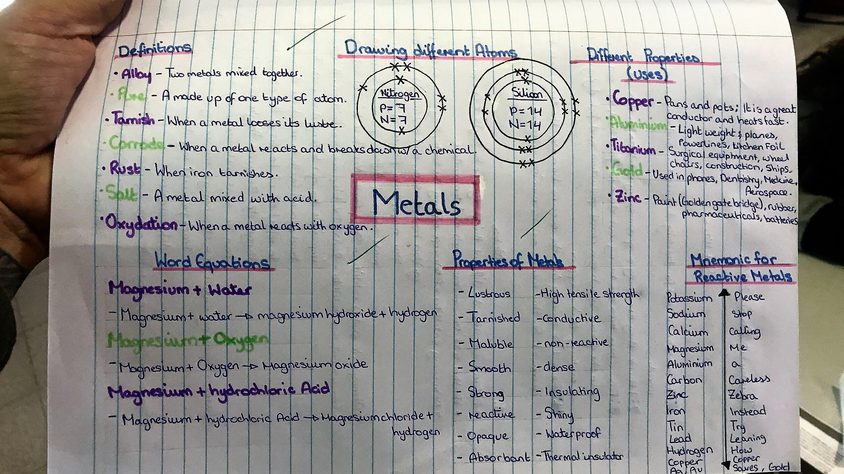 Definitions
• Alloy - Two metals mixed together.
• Pure - A made up of one type of atom.
• Tarnish - When a metal looses its lustre.
• Corrode - When a metal reacts and breaks down w/ a chemical
• Rust - When iron tarnishes.
• Salt - A metal mixed with acid.
• Oxydation - When a metal reacts with oxygen.
Drawing different Atoms
Nitrogen
P=7
N=7
Silicon
P=14
N=14
Different Properties
(uses)
• Copper - Pans and pots; It is a great
conductor and heats fast.
• Aluminium - Light weight & planes,
Powerlines, Kitchen Foil
• Titanium - Surgical equipment, wheel
chairs, construction, Ships.
• Gold - Used in phones, Dentistry, Medicine,
Aerospace.
• Zinc - Paint (Golden gate bridge), rubber,
pharmaceuticals, batteries
Metals
Word Equations
Magnesium + Water
- Magnesium + water → magnesium hydroxide + hydrogen
Magnesium + Oxygen
- Magnesium + Oxygen → Magnesium oxide
Magnesium + hydrochloric Acid
- Magnesium + hydrochloric Acid → Magnesium chloride +
hydrogen
Properties of Metals
- Lustrous - High tensile strength
- Tarnished - conductive
- Maluble - non-reactive
- Smooth - dense
- Strong - Insulating
- reactive - Shiny
- Opaque - Waterproof
- Absorbant - Thermal insulator
Mnemonic for
Reactive Metals
Potassium Please
Sodium stop
Calcium calling
Magnesium Me
Aluminium a
Carbon Careless
Zinc Zebra
Iron Instead
Tin Try
Lead Leaning
Hydrogen How
Copper Copper
Ag/Au Saves, Gold